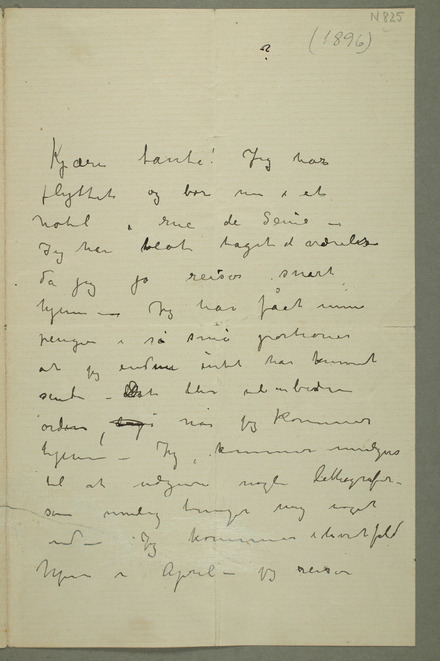 N 825
(1896)
?
Kjære tante! Jeg har
flyttet og bor nu i et
hotel i rue de Seine –
Jeg har blot taget d værelse
da jeg jo reiser snart
hjem – Jeg har fået mine
penger i så små portioner
at jeg endnu intet har kunnet
sende – Det blir i
orden, når jeg kommer
hjem – Jeg kommer
til at udgive nogle lithografier
som mulig bringer mig noget
ind – Jeg kommer i hvert fald
hjem i April – jeg reiser